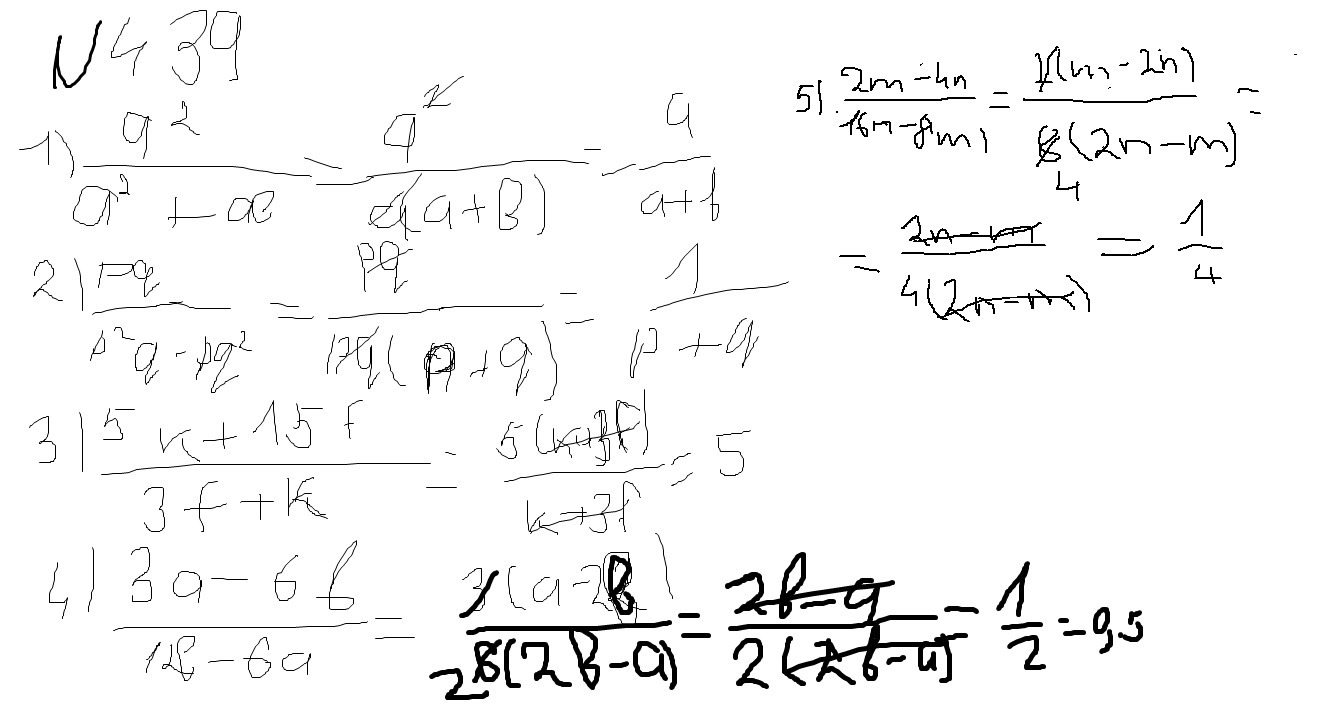 N439
1) a²/(a² + aв) = a²/(a(a+в)) = a/(a+в)
2) pq/(p²q - pq²) = pq/(pq(p+q)) = 1/(p+q)
3) (5k+15f)/(3f+k) = 5(k+3f)/(k+3f) = 5
4) (3a-6в)/(12в-6a) = 3(a-2в)/(6(2в-a)) 2 = (2в-a)/(2(2в-a)) = 1/2 = 0,5
5) (2m-4n)/(16n-8m) = 2(m-2n)/(8(2n-m)) =
4
= (2n-m)/(4(2n-m)) = 1/4